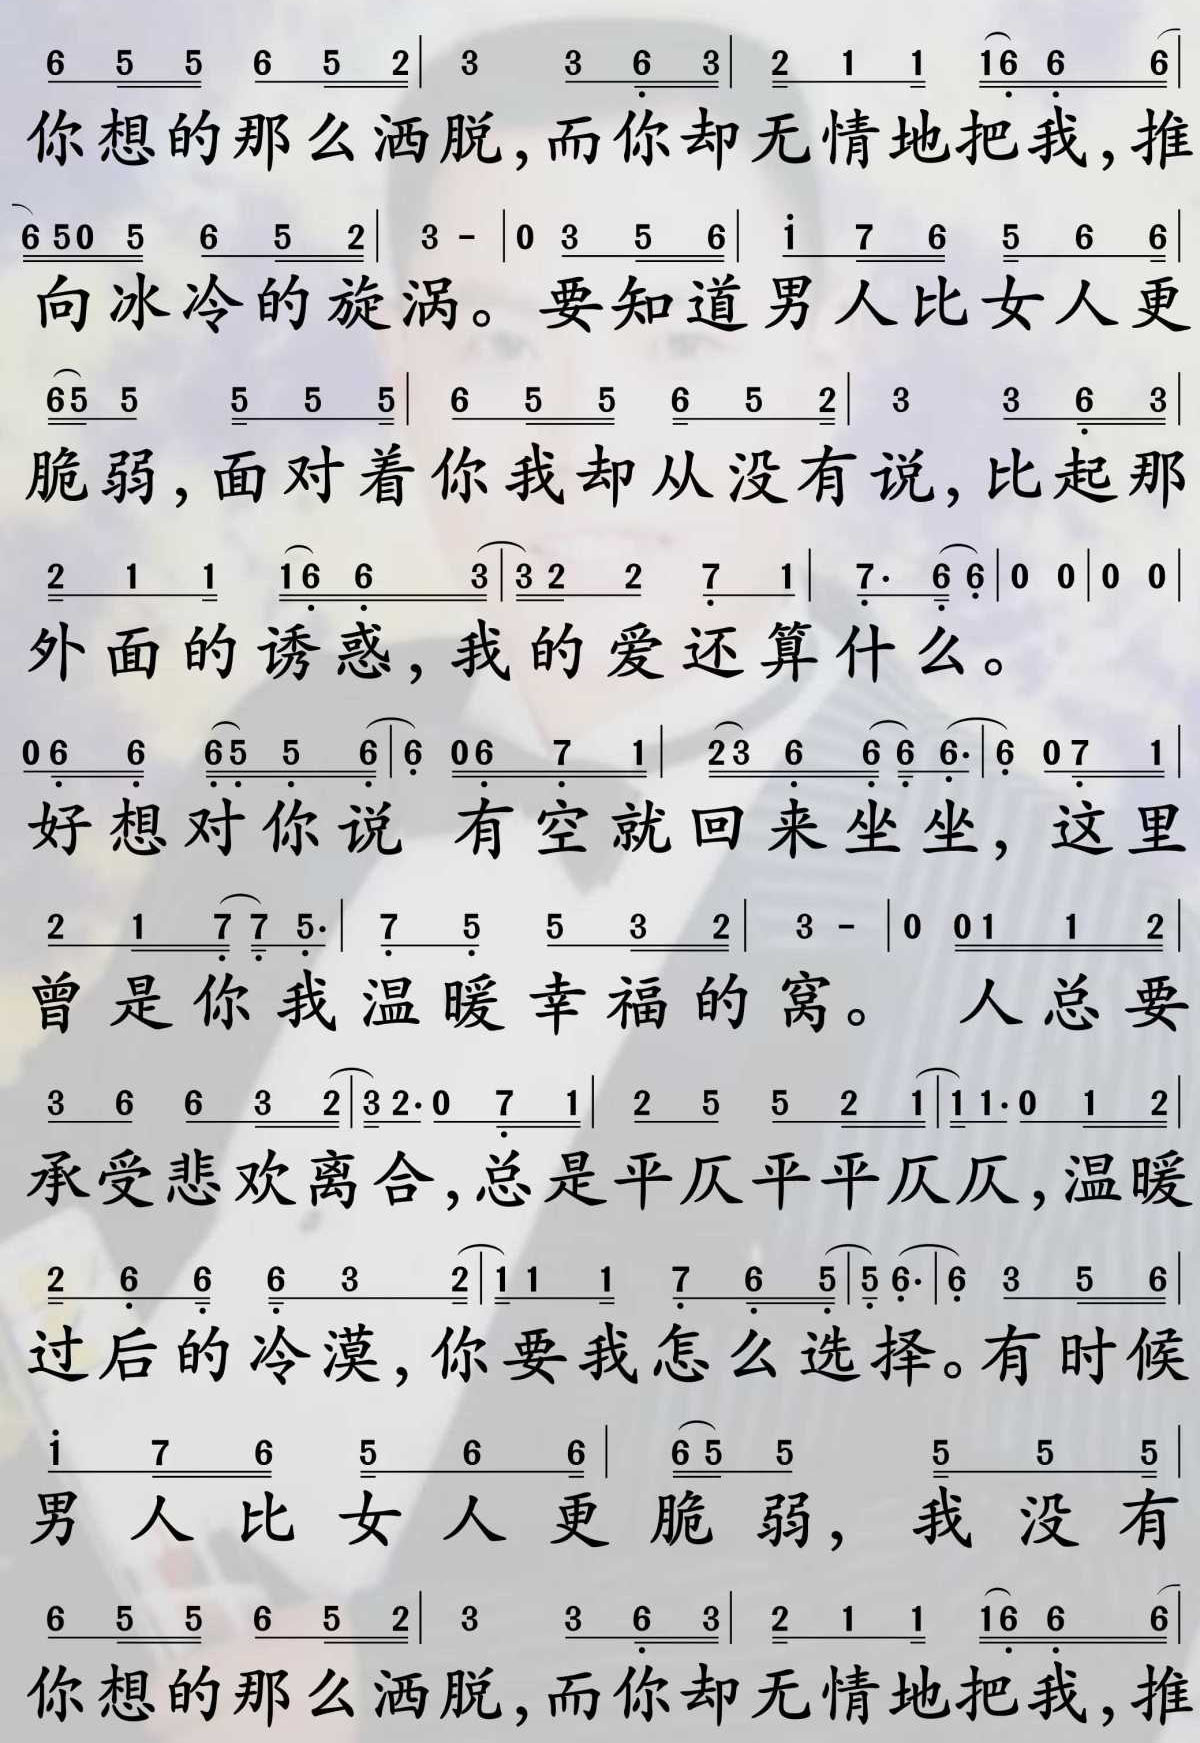 6 5 5 6 5 2 | 3 3 6 3 | 2 1 1 16 6 6 |
你想的那么洒脱，而你却无情地把我，推
6 50 5 6 5 2 | 3 - | 0 3 5 6 | 1 7 6 5 6 6 |
向冰冷的旋涡。要知道男人比女人更
65 5 5 5 5 | 6 5 5 6 5 2 | 3 3 6 3 |
脆弱，面对着你我却从没有说，比起那
2 1 1 16 6 3 | 3 2 2 7 1 | 7· 6 6 | 0 0 | 0 0 |
外面的诱惑，我的爱还算什么。
06 6 65 5 6 | 6 06 7 1 | 23 6 6 6 6· | 6 07 1 |
好想对你说 有空就回来坐坐，这里
2 1 7 7 5· | 7 5 5 3 2 | 3 - | 0 01 1 2 |
曾是你我温暖幸福的窝。 人总要
3 6 6 3 2 | 3 2· 0 7 1 | 2 5 5 2 1 | 1 1· 0 1 2 |
承受悲欢离合，总是平仄平平仄仄，温暖
2 6 6 6 3 2 | 1 1 1 7 6 5 | 5 6· | 6 3 5 6 |
过后的冷漠，你要我怎么选择。有时候
1 7 6 5 6 6 | 6 5 5 5 5 5 |
男人比女人更脆弱，我没有
6 5 5 6 5 2 | 3 3 6 3 | 2 1 1 16 6 6 |
你想的那么洒脱，而你却无情地把我，推